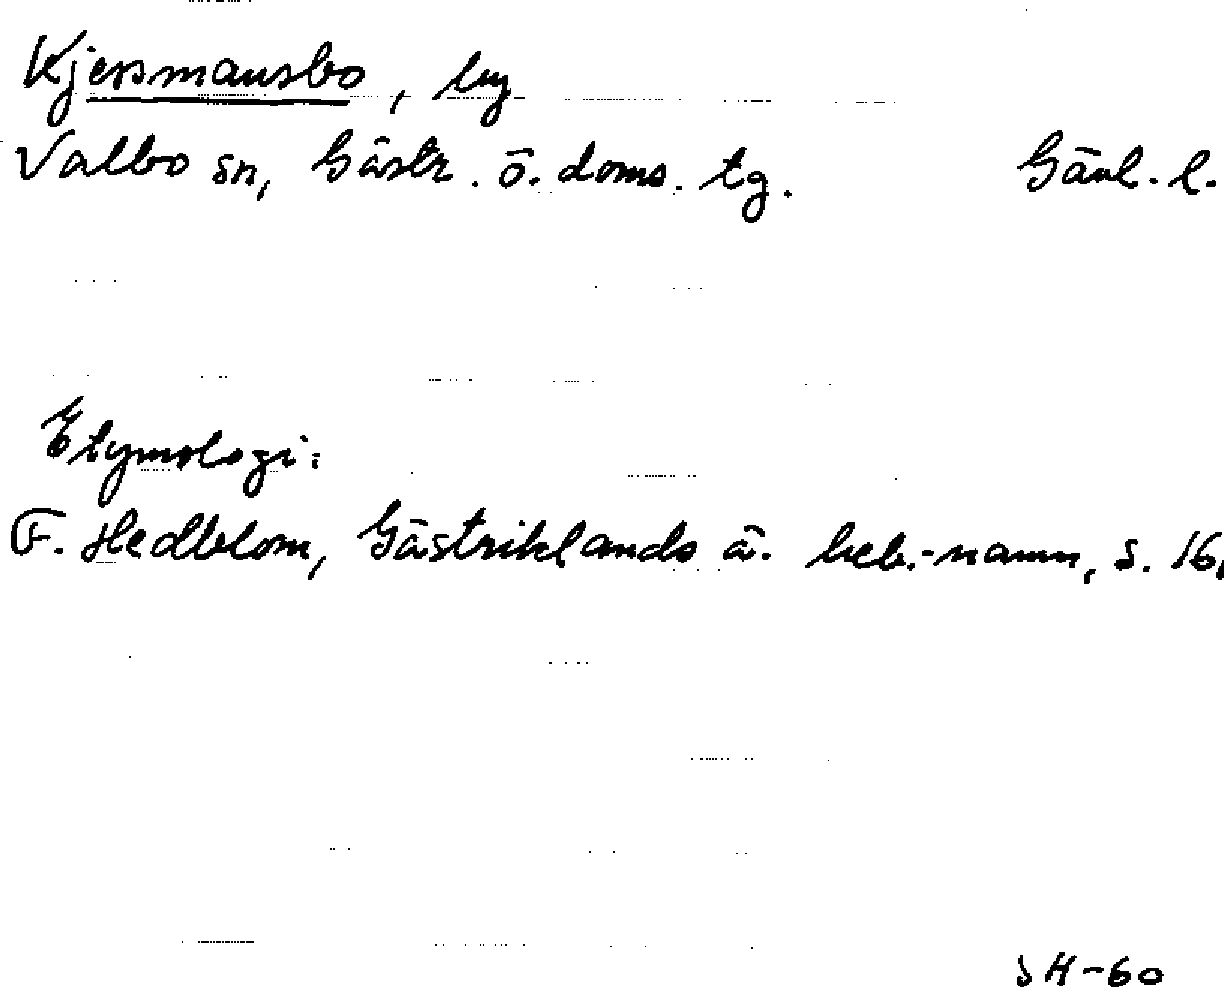 Kjersmansbo, by
Valbo sn, Gästr. ö. doms. tg. Gävl. l.
Etymologi:
F. Hedblom, Gästriklands ä. beb.-namn, s. 16,
SH-60